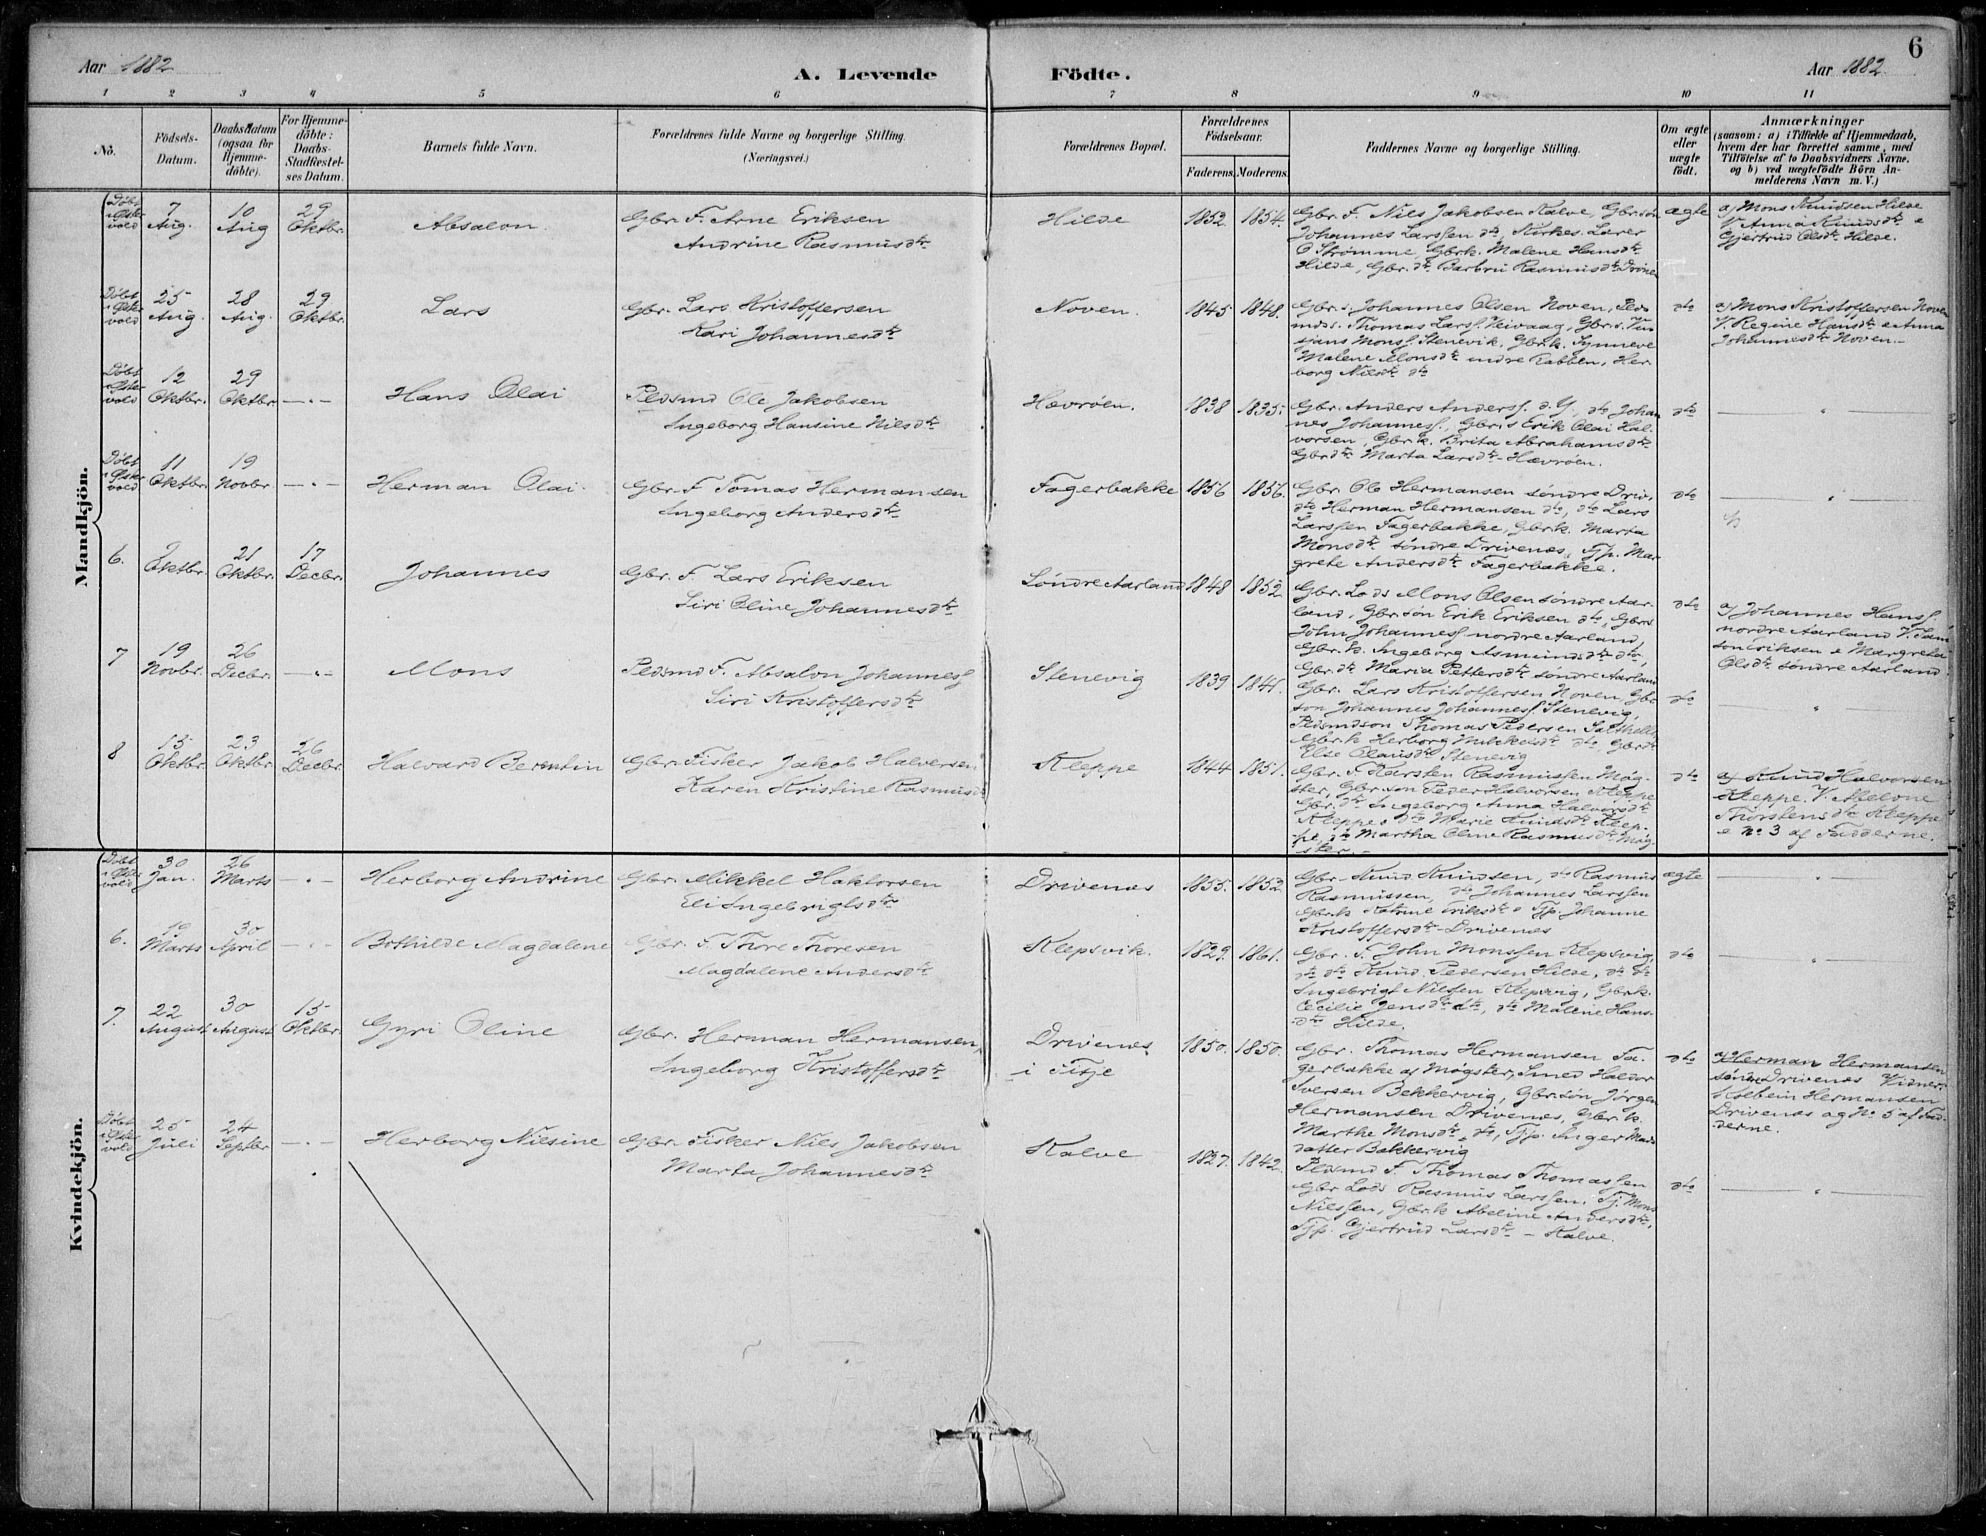 6
Aar 1882
A. Levende Födte.
Aar 1882
1 2 3 4 5 6 7 8 9 10 11
No.
Födsels-
Datum.
Daabsdatum
(ogsaa for
Hjemme-
döbte).
For Hjemme-
döbte:
Daabs-
Stadfæstel-
ses Datum.
Barnets fulde Navn.
Forældrenes fulde Navne og borgerlige Stilling.
(Næringsvei.)
Forældrenes Bopæl.
Forældrenes
Födselsaar.
Faderens. Moderens.
Faddernes Navne og borgerlige Stilling.
Om ægte
eller
uægte
födt.
Anmærkninger
(saasom: a) i Tilfælde af Hjemmedaab,
hvem der har forrettet samme, med
Tilföielse af to Daabsvidners Navne.
og b) ved uægtefödte Börn An-
melderens Navn m. V.)
Mandkjön.
Døbt
i Øster
vold
7
Aug.
10
Aug
29
Oktbr.
Absalon.
Gbr. F. Arne Eriksen
Andrine Rasmusdtr
Hilde
1852 1854.
Gbr. F. Nils Jakobsen Kalve, Gbr.søn
Johannes Larssen dto, Kirkes. Lærer
O Strømme, Gbrk. Malene Hansdtr
Hilde, Gbr.dtr Barbru Rasmusdtr Drive
ægte
a) Mons Knudsen Hilde
V. Anna Knudsdtr e
Gjertrud Olsdtr Hilde.
Døbt
i Øster
vold
25
Aug.
28
Aug.
29
Oktbr.
Lars
Gbr. Lars Kristoffersen
Kari Johannesdtr
Noven.
1845 1848.
Gbr.s. Johannes Olsen Noven, Pds
mds. Thomas Larss. Veivaag, Gbr.s.
Monss. Stenevik, Gbrk. Synneve
Malene Monsdtr indre Rabben, Her
borg Nilsdtr dto
dto
a) Mons Kristoffersen Noven
V. Regine Hansdtr e Anna
Johannesdtr Noven.
Døbt
i Øster
vold
12
Oktbr.
29
Oktbr.
— " —
Hans Olai
Pldsmd Ole Jakobsen
Ingeborg Hansine Nilsdtr
Hævrøen.
1838 1835.
Gbr. Anders Anderss. d. Y, dto Johan
nes Johanness., Gbr.s Erik Olai Hal
vorsen, Gbr.k. Brita Abrahamsdtr
Gbrdtr Marta Larsdtr Hævrøen.
dto
— " —
Døbt
i Øster
vold
11
Oktbr.
19
Novbr
— " —
Herman Olai.
Gbr. F Tomas Hermansen
Ingeborg Andersdtr
Fagerbakke
1856 1856.
Gbr. Ole Hermansen søndre Driv.
dto Herman Hermansen dto, dto Lars
Larssen Fagerbakke, Gbrk. Marta
Monsdtr søndre Drivenes, Tjp. Mar
grete Andersdtr Fagerbakke.
dto
— " —
6.
2
Oktbr.
21
Oktbr.
17
Decbr.
Johannes
Gbr. F. Lars Eriksen
Siri Oline Johannesdtr
Søndre Aarland
1848 1852
Gbr. Lods Mons Olsen søndre Aar-
land, Gbr.søn Erik Eriksen dto, Gbr.s
John Johanness. nordre Aarland,
Gbr.k. Ingeborg Asmundsdtr dto,
Gbr.dtr Maria Pettersdtr søndre Aarland
dto
a) Johannes Hanss.
nordre Aarland V. Sam
son Eriksen e Margrete
Olsdtr søndre Aarland.
7
19
Novbr.
26
Decbr.
— " —
Mons
Pldsmd F. Absalon Johanness.
Siri Kristoffersdtr
Stenevig
1839 1841.
Gbr. Lars Kristoffersen Noven, Gbr
søn Johannes Johanness. Stenevig,
Pldsmdsøn Thomas Pedersen Salthella
Gbrk Herborg Mikkelsdtr dto, Gbrdtr
Else Olausdtr Stenevig
dto
— " —
8
15
Oktbr.
23
Oktbr.
26
Decbr.
Halvard Berentin
Gbr. Fisker Jakob Halversen
Karen Kristine Rasmusd
Kleppe
1844 1851.
Gbr. F Karsten Rasmussen Møg-
ster, Gbr.søn Peder Halvorsen Kleppe
Gbr.dtr Ingeborg Anna Halvorsdtr
Kleppe, dto Marie Knudsdtr Klep-
pe, dto Martha Oline Rasmusdtr Møg-
ster. -
dto
a) Knud Halvorsen
Kleppe. V. Abelone
Thorstensdtr Kleppe
e No 3 af Fadderne.
Kvindekjön.
Døbt
i Øster
vold
30
Jan.
26
Marts
— " —
Herborg Andrine
Gbr. Mikkel Haktorsen
Eli Ingebrigtsdtr
Drivenæs
1855. 1852.
Gbr. Knud Knudsen, dto Rasmus
Rasmussen, dto Johannes Larssen
Gbrk Katrine Eriksdtr Tjp. Johanne
Kristoffersdtr Drivenæs
ægte
— " —
6.
Marts
30
April
— " —
Bothilde Magdalene
Gbr. F. Thore Thoresen
Magdalene Andersdtr
Klepsvik.
1829. 1861.
Gbr. F. John Monssen Klepsvig,
dto dto Knud Pedersen Hilde, dto dto
Ingebrigt Nilssen Klepsvig, Gbrk.
Cecilie Jensdtr dto, dto Malene Hans-
dtr Hilde.
dto
— " —
7.
22
August
30
August
15
Oktbr.
Gyri Oline
Gbr. Herman Hermansen,
Ingeborg Kristoffersdtr
Drivenes
i Fitje
1850. 1850.
Gbr. Thomas Hermansen Fa-
gerbakke af Møgster, Smed Haldor
Iversen Bekkervig, Gbr.søn Jørgen
Hermansen Drivenes, Gbr.k.
Marthe Monsdtr dto, Tjp. Inger Mads
datter Bekkervig
dto
a) Herman Hermansen
søndre Drivenæs Vidner
Kolbein Hermansen
Drivenæs og No 5 af Fad
derne.
Døbt
i Øster
vold
25
Juli
24
Septbr
— " —
Herborg Nilsine
Gbr. Fisker Nils Jakobsen
Marta Johannesdtr
Kalve
1827. 1842.
Pldsmd F Thomas Thomassen
Gbr Lods Rasmus Larssen. Tj. Mons
Nilssen, Gbr.k Abeline Andersdtr,
Tjp. Gjertrud Larsdtr - Kalve.
dto
— " —